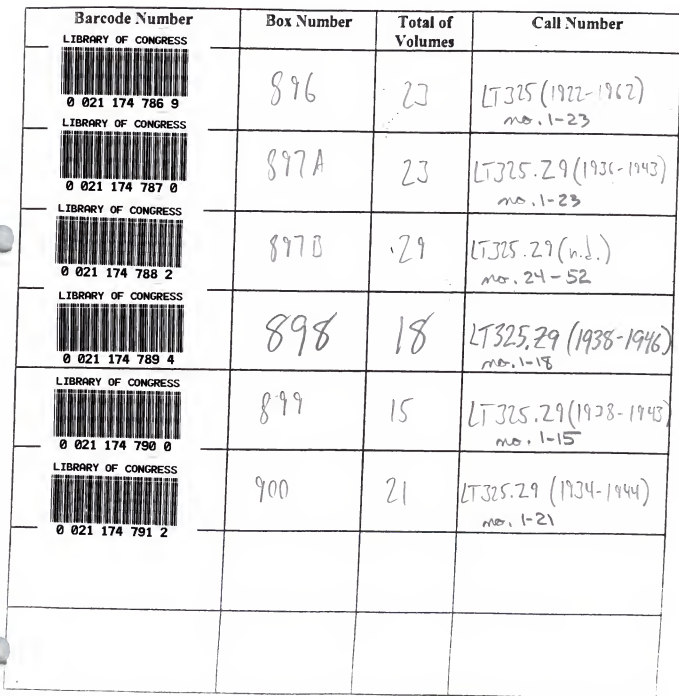 Barcode Number Box Number Total of Volumes Call Number
LIBRARY OF CONGRESS
0 021 174 786 9
896
23
LT325 (1922-1962)
no. 1-23
LIBRARY OF CONGRESS
0 021 174 787 0
897A
23
LT325.Z9 (1936-1943)
no. 1-23
LIBRARY OF CONGRESS
0 021 174 788 2
897B
29
LT325.Z9 (n.d.)
no. 24-52
LIBRARY OF CONGRESS
0 021 174 789 4
898
18
LT325.Z9 (1938-1946)
no. 1-18
LIBRARY OF CONGRESS
0 021 174 790 0
899
15
LT325.Z9 (1938-1943
no. 1-15
LIBRARY OF CONGRESS
0 021 174 791 2
900
21
LT325.Z9 (1934-1944)
no. 1-21